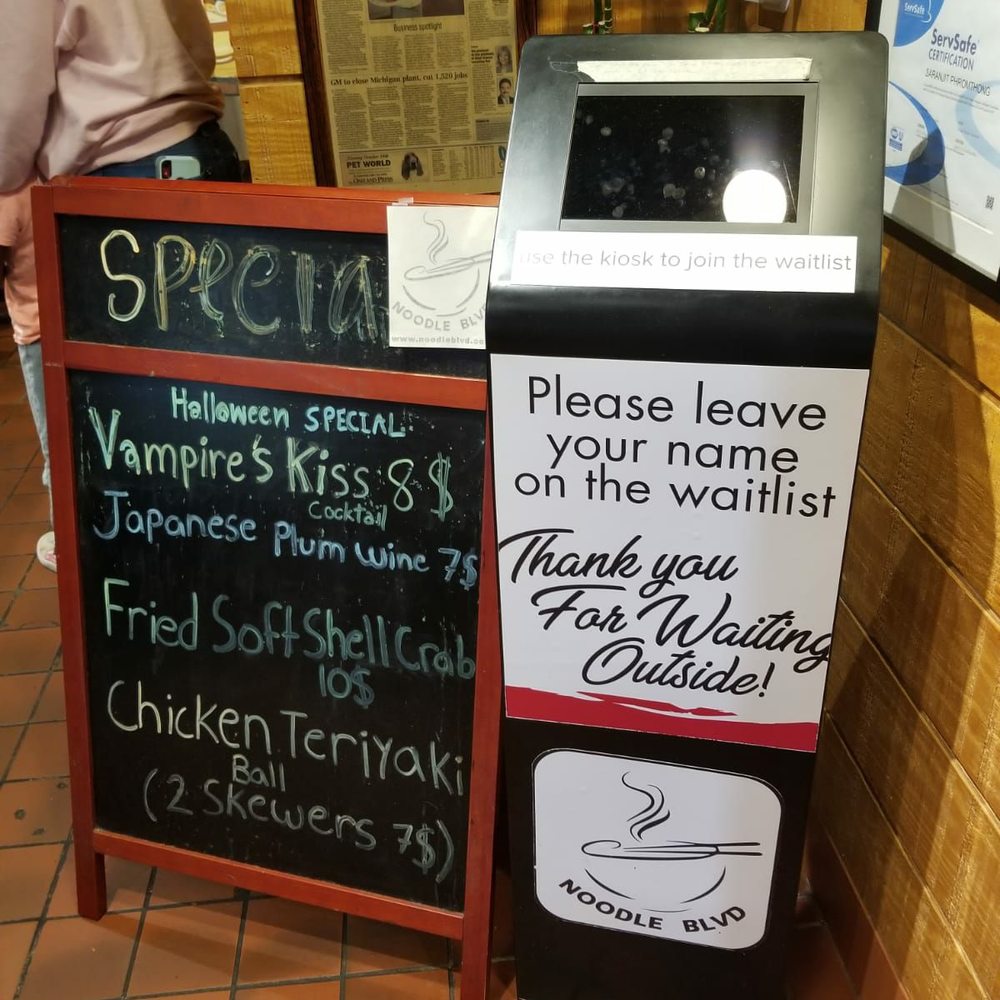 Business spotlight
GM to close Michigan plant, cut 1,520 jobs
PET WORLD
OAKLAND PRESS
ServSafe
ServSafe
CERTIFICATION
SARANJIT PHROMTHONG
Special
NOODLE BLVD
www.noodleblvd.co
Halloween SPECIAL.
Vampire's Kiss 8$
Cocktail
Japanese Plum Wine 7$
Fried Soft Shell Crab
10$
Chicken Teriyaki
Ball
(2 Skewers 7$)
use the kiosk to join the waitlist
Please leave
your name
on the waitlist
Thank you
For Waiting
Outside!
NOODLE BLVD